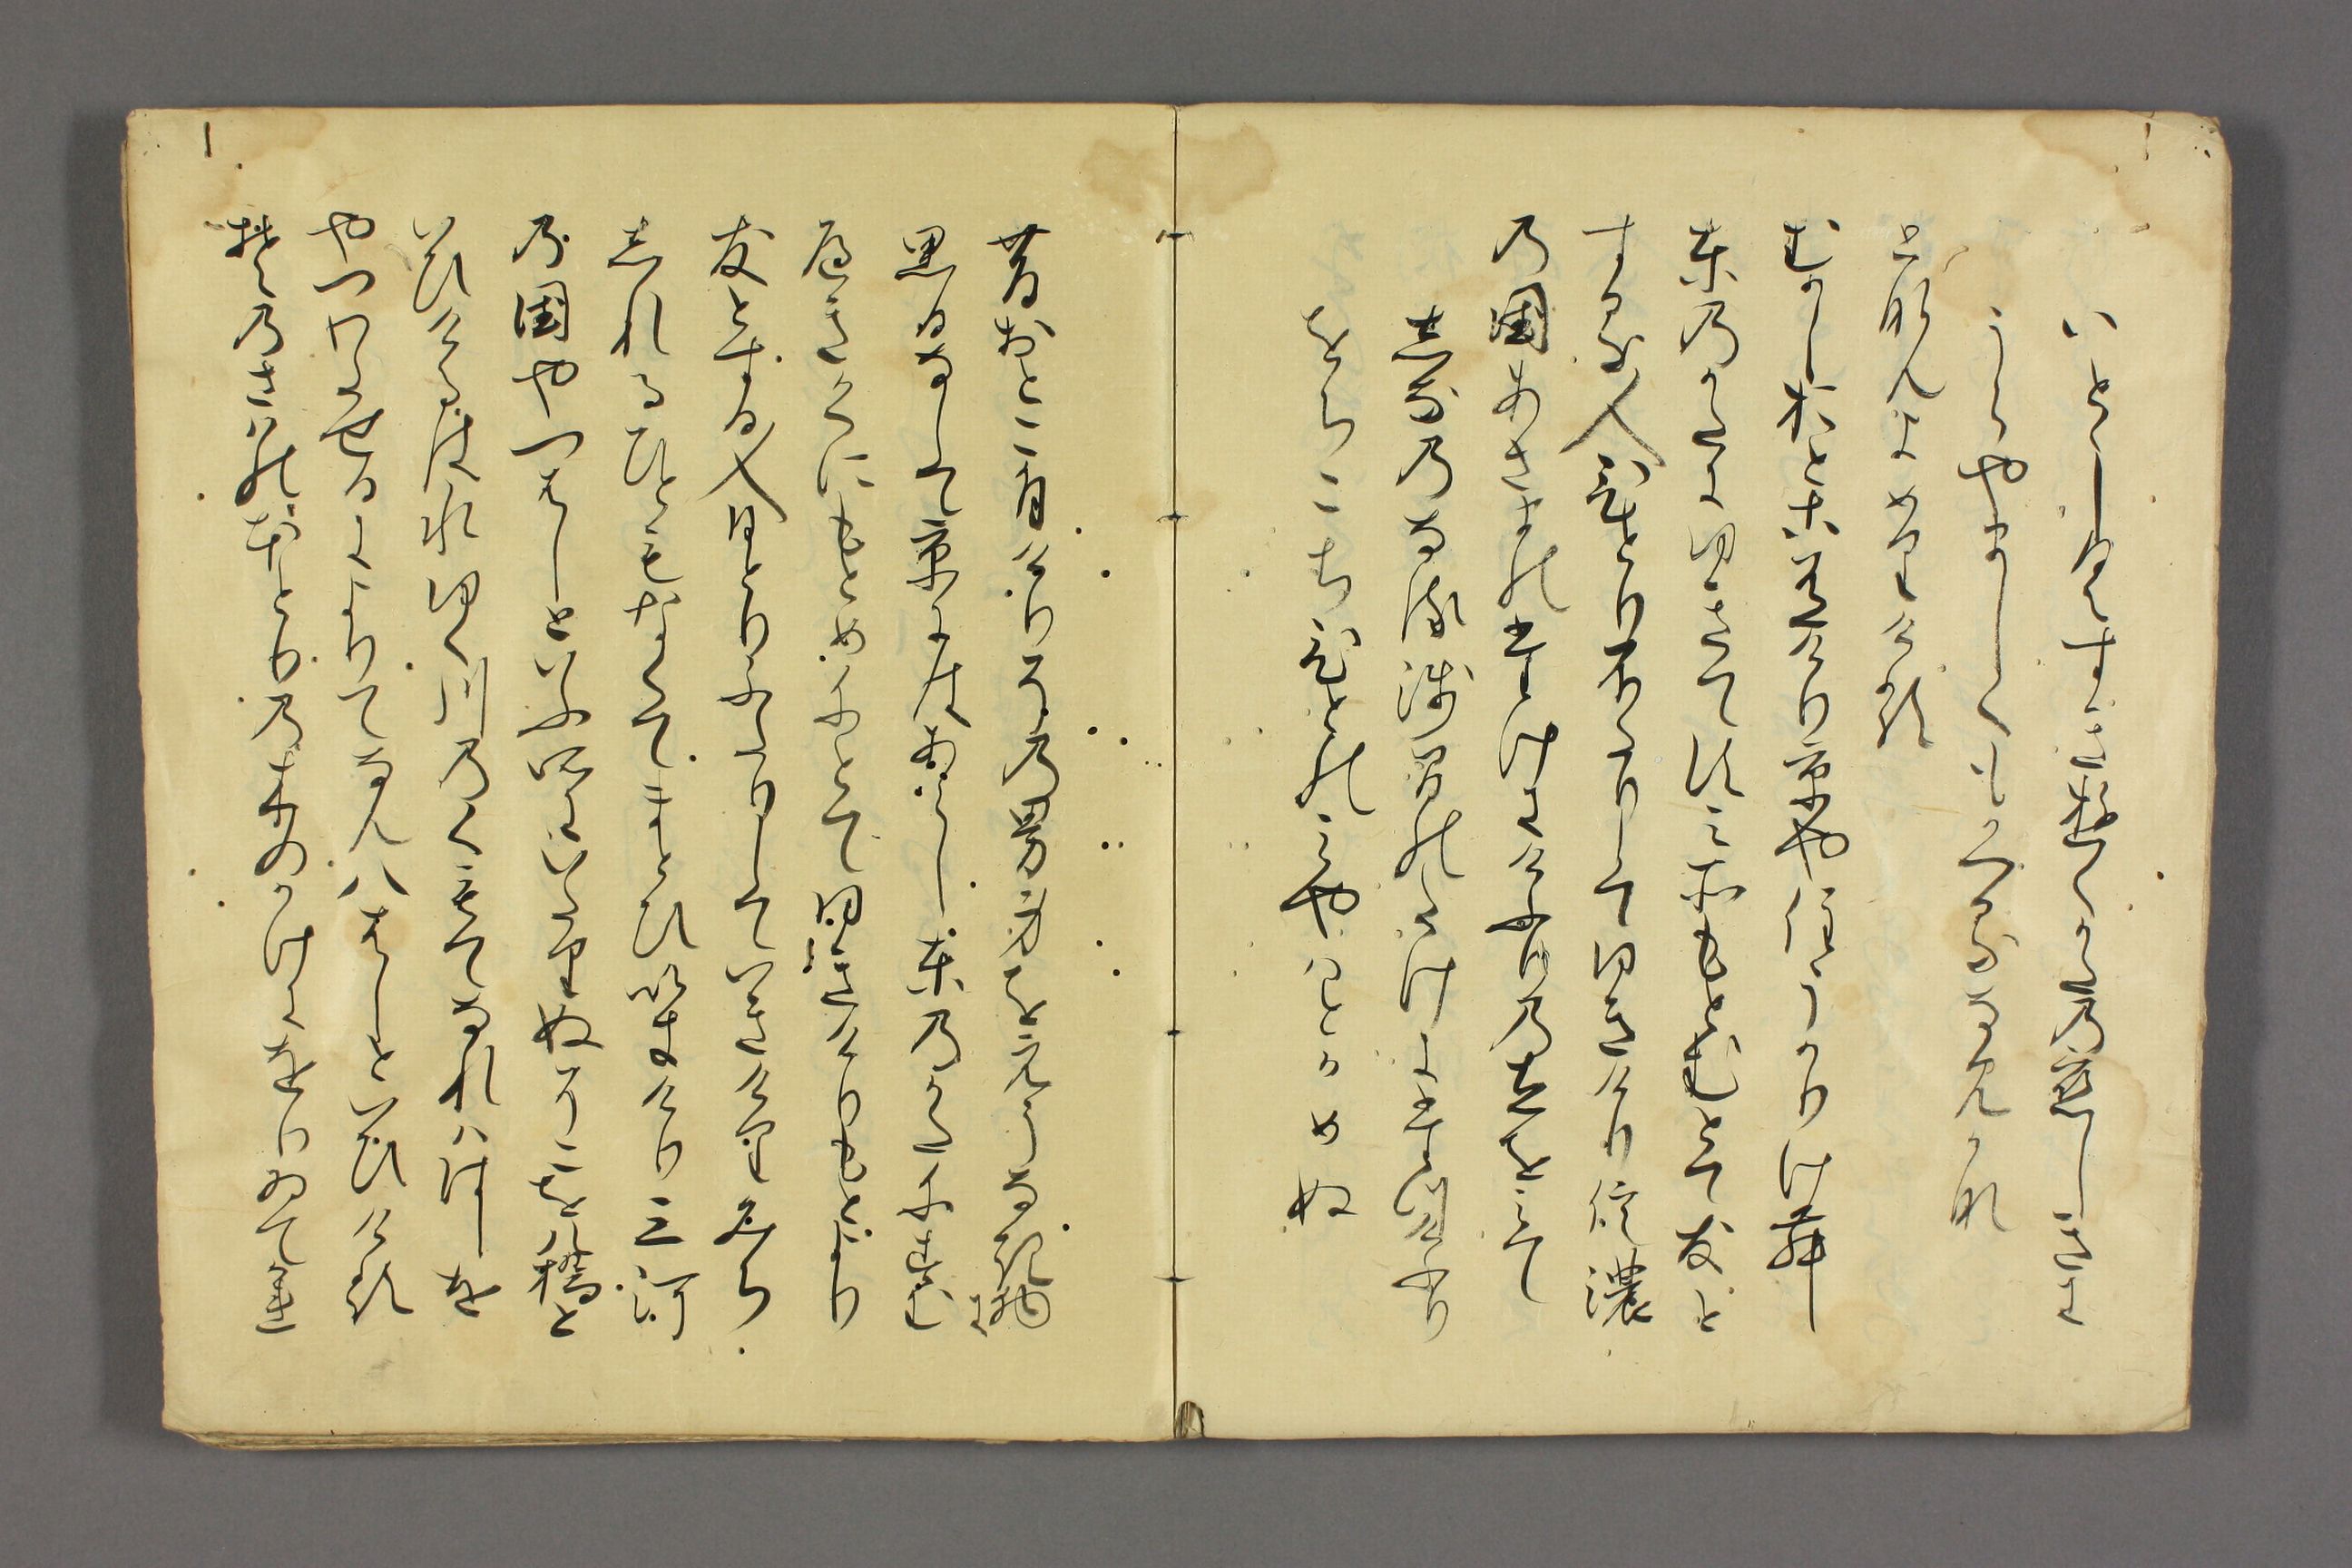 いとゝしくすき行かたの恋しきに
うら山しくもかへるなみかな
となんよめりける
むかしおとこ有けり京やすみうかりけん
東のかたにゆきてすみ所もとむとて友と
する人ひとりふたりしてゆきけり信濃
の国あさまのたけにけふりの立をみて
しなのなる浅間のたけにたつけふり
をちこち人のみやはとかめぬ
昔おとこ有けりその男身をえうなき物に
思ひなして京にはあらし東のかたにすむ
へきくにもとめにとてゆきけりもとより
友とする人ひとりふたりしていきけり道
しれるひともなくてまとひいきけり三河
の国やつはしといふ所にいたりぬそこを八橋と
いひけるは水ゆく川のくもてなれははしを
やつわたせるによりてなん八はしといひける
その沢のほとりの木のかけにおりゐて